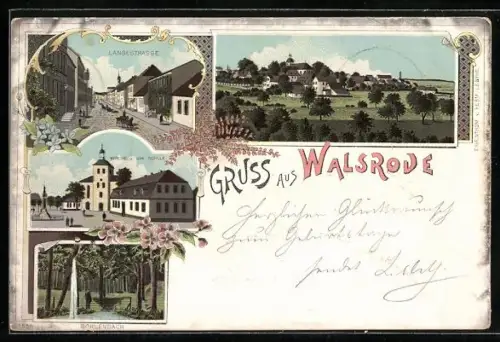 LANGESTRASSE
GRUSS AUS WALSRODE
Herzlichen Glückwunsch
zum Geburtstage
sendet
BÖHLENBACH